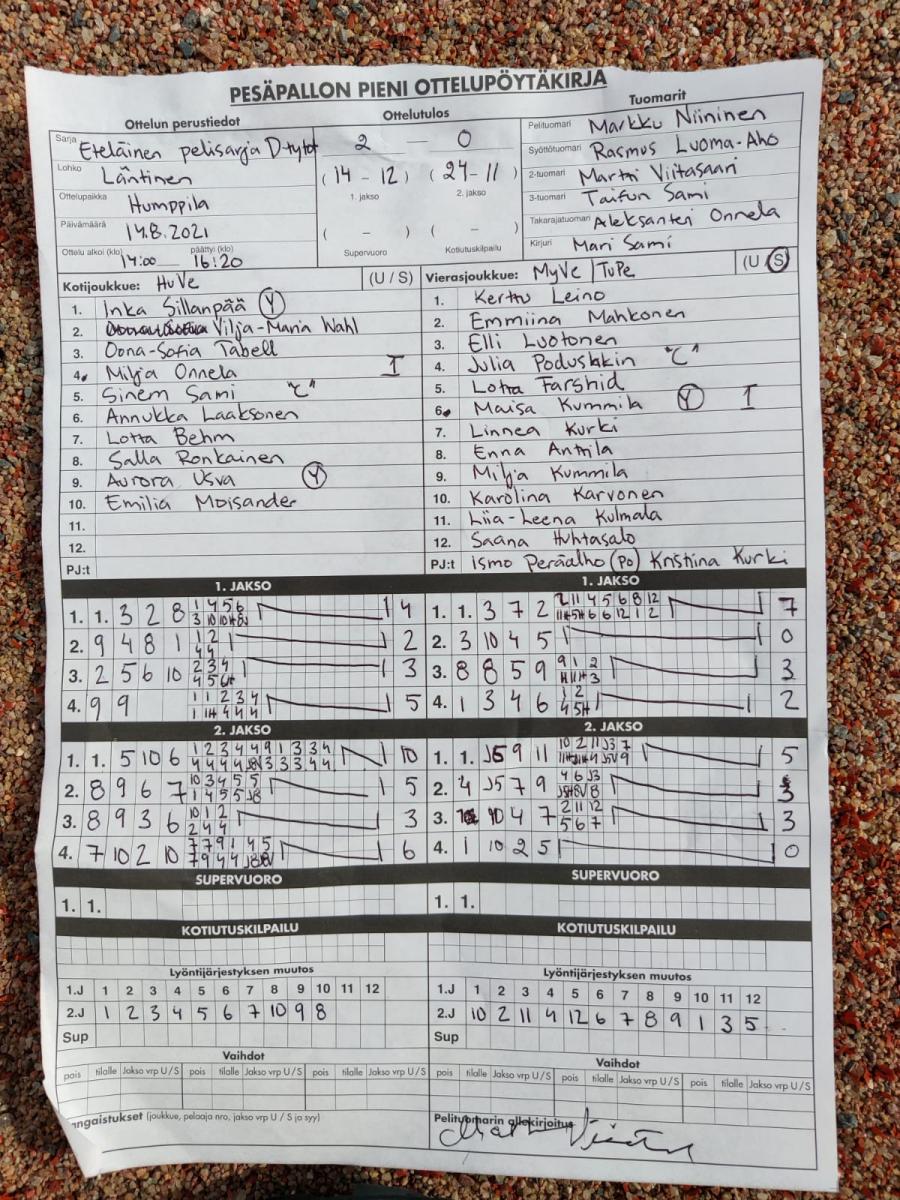 PESÄPALLON PIENI OTTELUPÖYTÄKIRJA
Ottelun perustiedot
Sarja Eteläinen pelisarja D-tytöt
Lohko Läntinen
Ottelupaikka Humppila
Päivämäärä 14.8.2021
Ottelu alkoi (klo) 14:00 päättyi (klo) 16:20
Ottelutulos
2 – 0
(14 – 12) (24 – 11)
1. jakso 2. jakso
( – ) ( – )
Supervuoro Kotiutuskilpailu
Tuomarit
Pelituomari Markku Niininen
Syöttötuomari Rasmus Luoma-Aho
2-tuomari Martti Viitasaari
3-tuomari Taifun Sami
Takarajatuomari Aleksanteri Onnela
Kirjuri Mari Sami
Kotijoukkue: HuVe (U / S)
1. Inka Sillanpää Y
2. Vilja-Maria Wahl
3. Oona-Sofia Tabell
4. Milja Onnela I
5. Sinem Sami "C"
6. Annukka Laaksonen
7. Lotta Behm
8. Salla Ronkainen
9. Aurora Usva Y
10. Emilia Moisander
11.
12.
PJ:t
Vierasjoukkue: MyVe / TuPe (U / S)
1. Kerttu Leino
2. Emmiina Mahkonen
3. Elli Luotonen
4. Julia Podushkin "C"
5. Lotta Farshid
6. Maisa Kummila Y I
7. Linnea Kurki
8. Enna Anttila
9. Milja Kummila
10. Karolina Karvonen
11. Liia-Leena Kulmala
12. Saana Huhtasalo
PJ:t Ismo Peräalho (Po) Kristiina Kurki
1. JAKSO
1. 1. 3 2 8 4
2. 9 4 8 1 2
3. 2 5 6 10 3
4. 9 9 5
1. JAKSO
1. 1. 3 7 2 7
2. 3 10 4 5 0
3. 8 8 5 9 3
4. 1 3 4 6 2
2. JAKSO
1. 1. 5 10 6 10
2. 8 9 6 7 5
3. 8 9 3 6 3
4. 7 10 2 10 6
2. JAKSO
1. 1. J5 9 11 5
2. 4 J5 7 9 3
3. 10 4 7 3
4. 1 10 2 5 0
SUPERVUORO
1. 1.
SUPERVUORO
1. 1.
KOTIUTUSKILPAILU
KOTIUTUSKILPAILU
Lyöntijärjestyksen muutos
1.J 1 2 3 4 5 6 7 8 9 10 11 12
2.J 1 2 3 4 5 6 7 10 9 8
Sup
Lyöntijärjestyksen muutos
1.J 1 2 3 4 5 6 7 8 9 10 11 12
2.J 10 2 11 4 12 6 7 8 9 1 3 5
Sup
Vaihdot
pois tilalle Jakso vrp U/S pois tilalle Jakso vrp U/S pois tilalle Jakso vrp U/S
Vaihdot
pois tilalle Jakso vrp U/S pois tilalle Jakso vrp U/S pois tilalle Jakso vrp U/S
angaistukset (joukkue, pelaaja nro, jakso vrp U / S ja syy)
Pelituomarin allekirjoitus